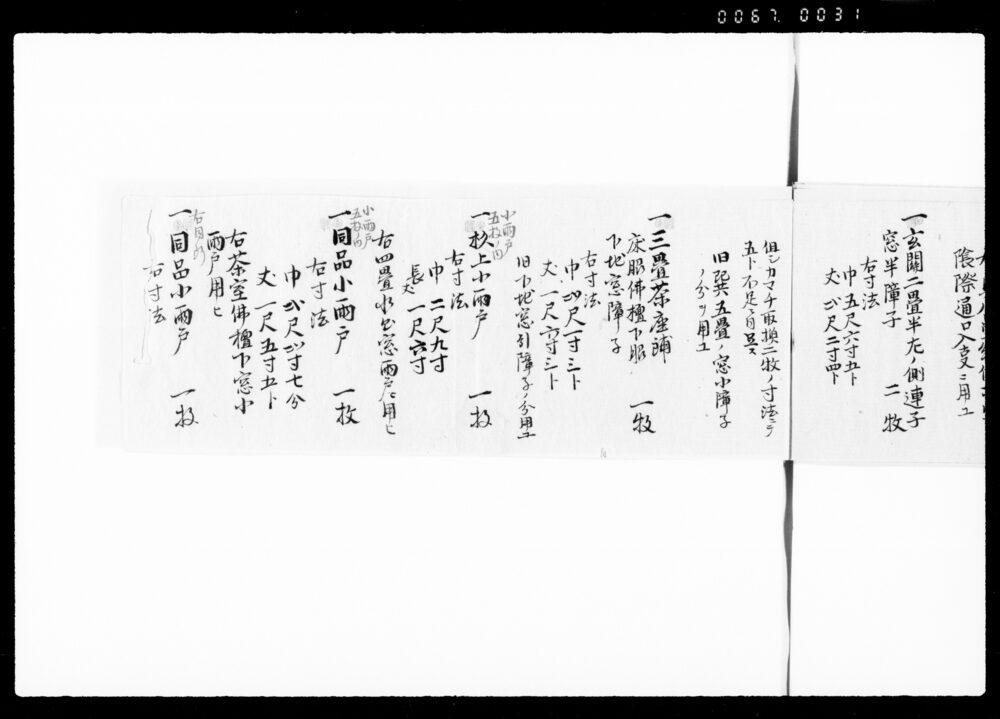 0067. 0031
陰際通口入交ニ用ユ
一玄関二畳半左ノ側連子
窓半障子 二牧
右寸法
巾五尺六寸五ト
丈弐尺二寸四ト
但シカマチ取損二牧ノ寸法ニテ
五ト不足
旧巽五畳ノ窓小障子
ノ分ヲ用ユ
一三畳茶座鋪
床脇佛檀下脇
下地窓障子 一牧
右寸法
巾弐尺一寸三ト
丈一尺六寸三ト
旧下地窓引障子ノ分用ユ
小雨戸
五枚ノ内
一杉上小雨戸 一牧
右寸法
巾二尺九寸
長一尺六寸
丈
右四畳水屯窓雨戸ニ用ヒ
小雨戸
五枚ノ内
一同品小雨戸 一牧
右寸法
巾弐尺弐寸七分
丈一尺五寸五ト
右茶室佛檀下窓小
雨戸用ヒ
右同断
一同品小雨戸 一牧
右寸法